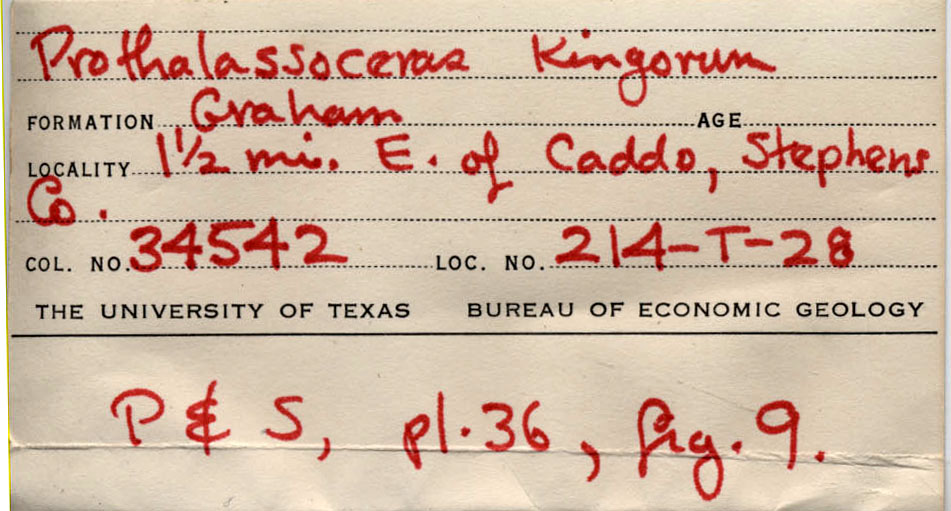 Prothalassoceras Kingorum
FORMATION Graham AGE
LOCALITY 1 1/2 mi. E. of Caddo, Stephens
Co.
COL. NO. 34542 LOC. NO. 214-T-28
THE UNIVERSITY OF TEXAS BUREAU OF ECONOMIC GEOLOGY
P & S, pl. 36, fig. 9.